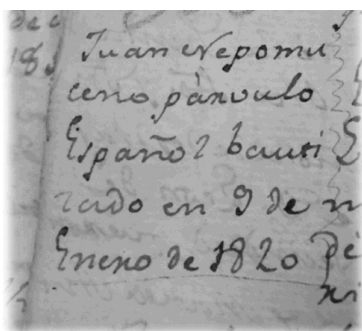 Juan Nepomu
ceno párvulo
Español bauti
zado en 9 de
Enero de 1820